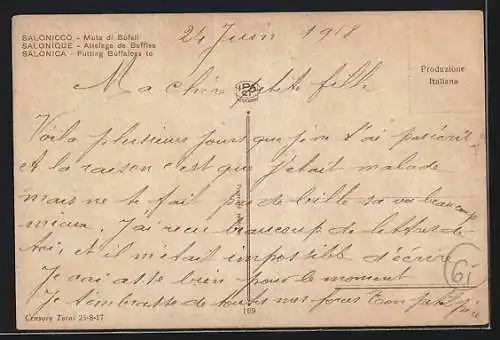 SALONICCO - Muta di Bufali
SALONIQUE - Attelage de Buffles
SALONICA - Putting Buffaloes to
24 Juin 1918
Produzione
Italiana
Ma chère petite fille
Voila plusieurs jours que je ne t'ai pas écrit
et la raison c'est que j'était malade
mais ne te fait pas de bille sa va beaucoup
mieux. J'ai recu beaucoup de lettres de
toi, et il m'etait impossible d'écrire
Je vai asse bien pour le moment
61
Je t'embrasse de toutes mes forces Ton petit père
Censore Terni 25-8-17
169